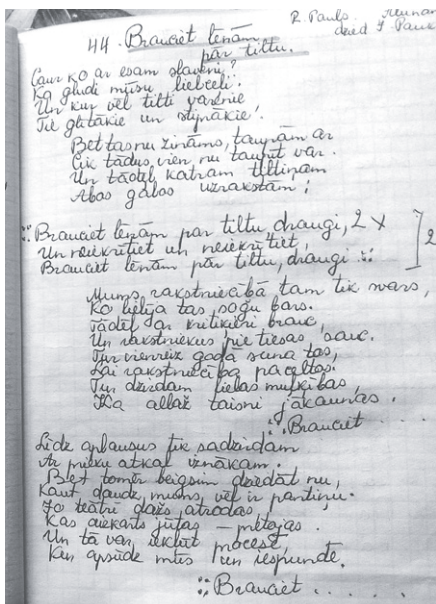 R. Pauls.
dzied J. Pauk
44. Brauciet lēnām
pār tiltu.
Caur ko ar esam slaveni?
Ka gludi mūsu lielceļi.
Un kur vēl tilti varenie
Tie glītākie un stiprākie!
Bet tas nu zināms, taupām ar
Cik tādus vien nu taupīt var.
Un tādēļ katram tiltiņam
Abos galos uzrakstām:
Brauciet lēnām pār tiltu, draugi, 2 x
Un neiekrītiet un neiekrītiet,
Brauciet lēnām pār tiltu, draugi :: ] 2
Mums rakstniecībā tam tik svars,
Ko lielīja tas sogu bars.
Tādēļ ar kritiķieri brauc,
Un rakstniekus pie tiesas sauc.
Tur vienreiz gada suna tas,
Lai rakstniecība paceltos.
Tur dzirdam lielas muļķības,
Ka allaž taisni jākaunas.
:: Brauciet ....
Līdz aplausus tik sadzirdam
Ar prieku atkal iznākam.
Bet tomēr beigsim dziedāt nu,
Kaut daudz mums vēl ir pantiņu.
Jo teātrī dažs atrodas,
Kas aizkarts jūtas – mētājas.
Un tā var iekļūt procesā,
Kur apsūdz mūs un iespundē.
:: Brauciet . . . . .